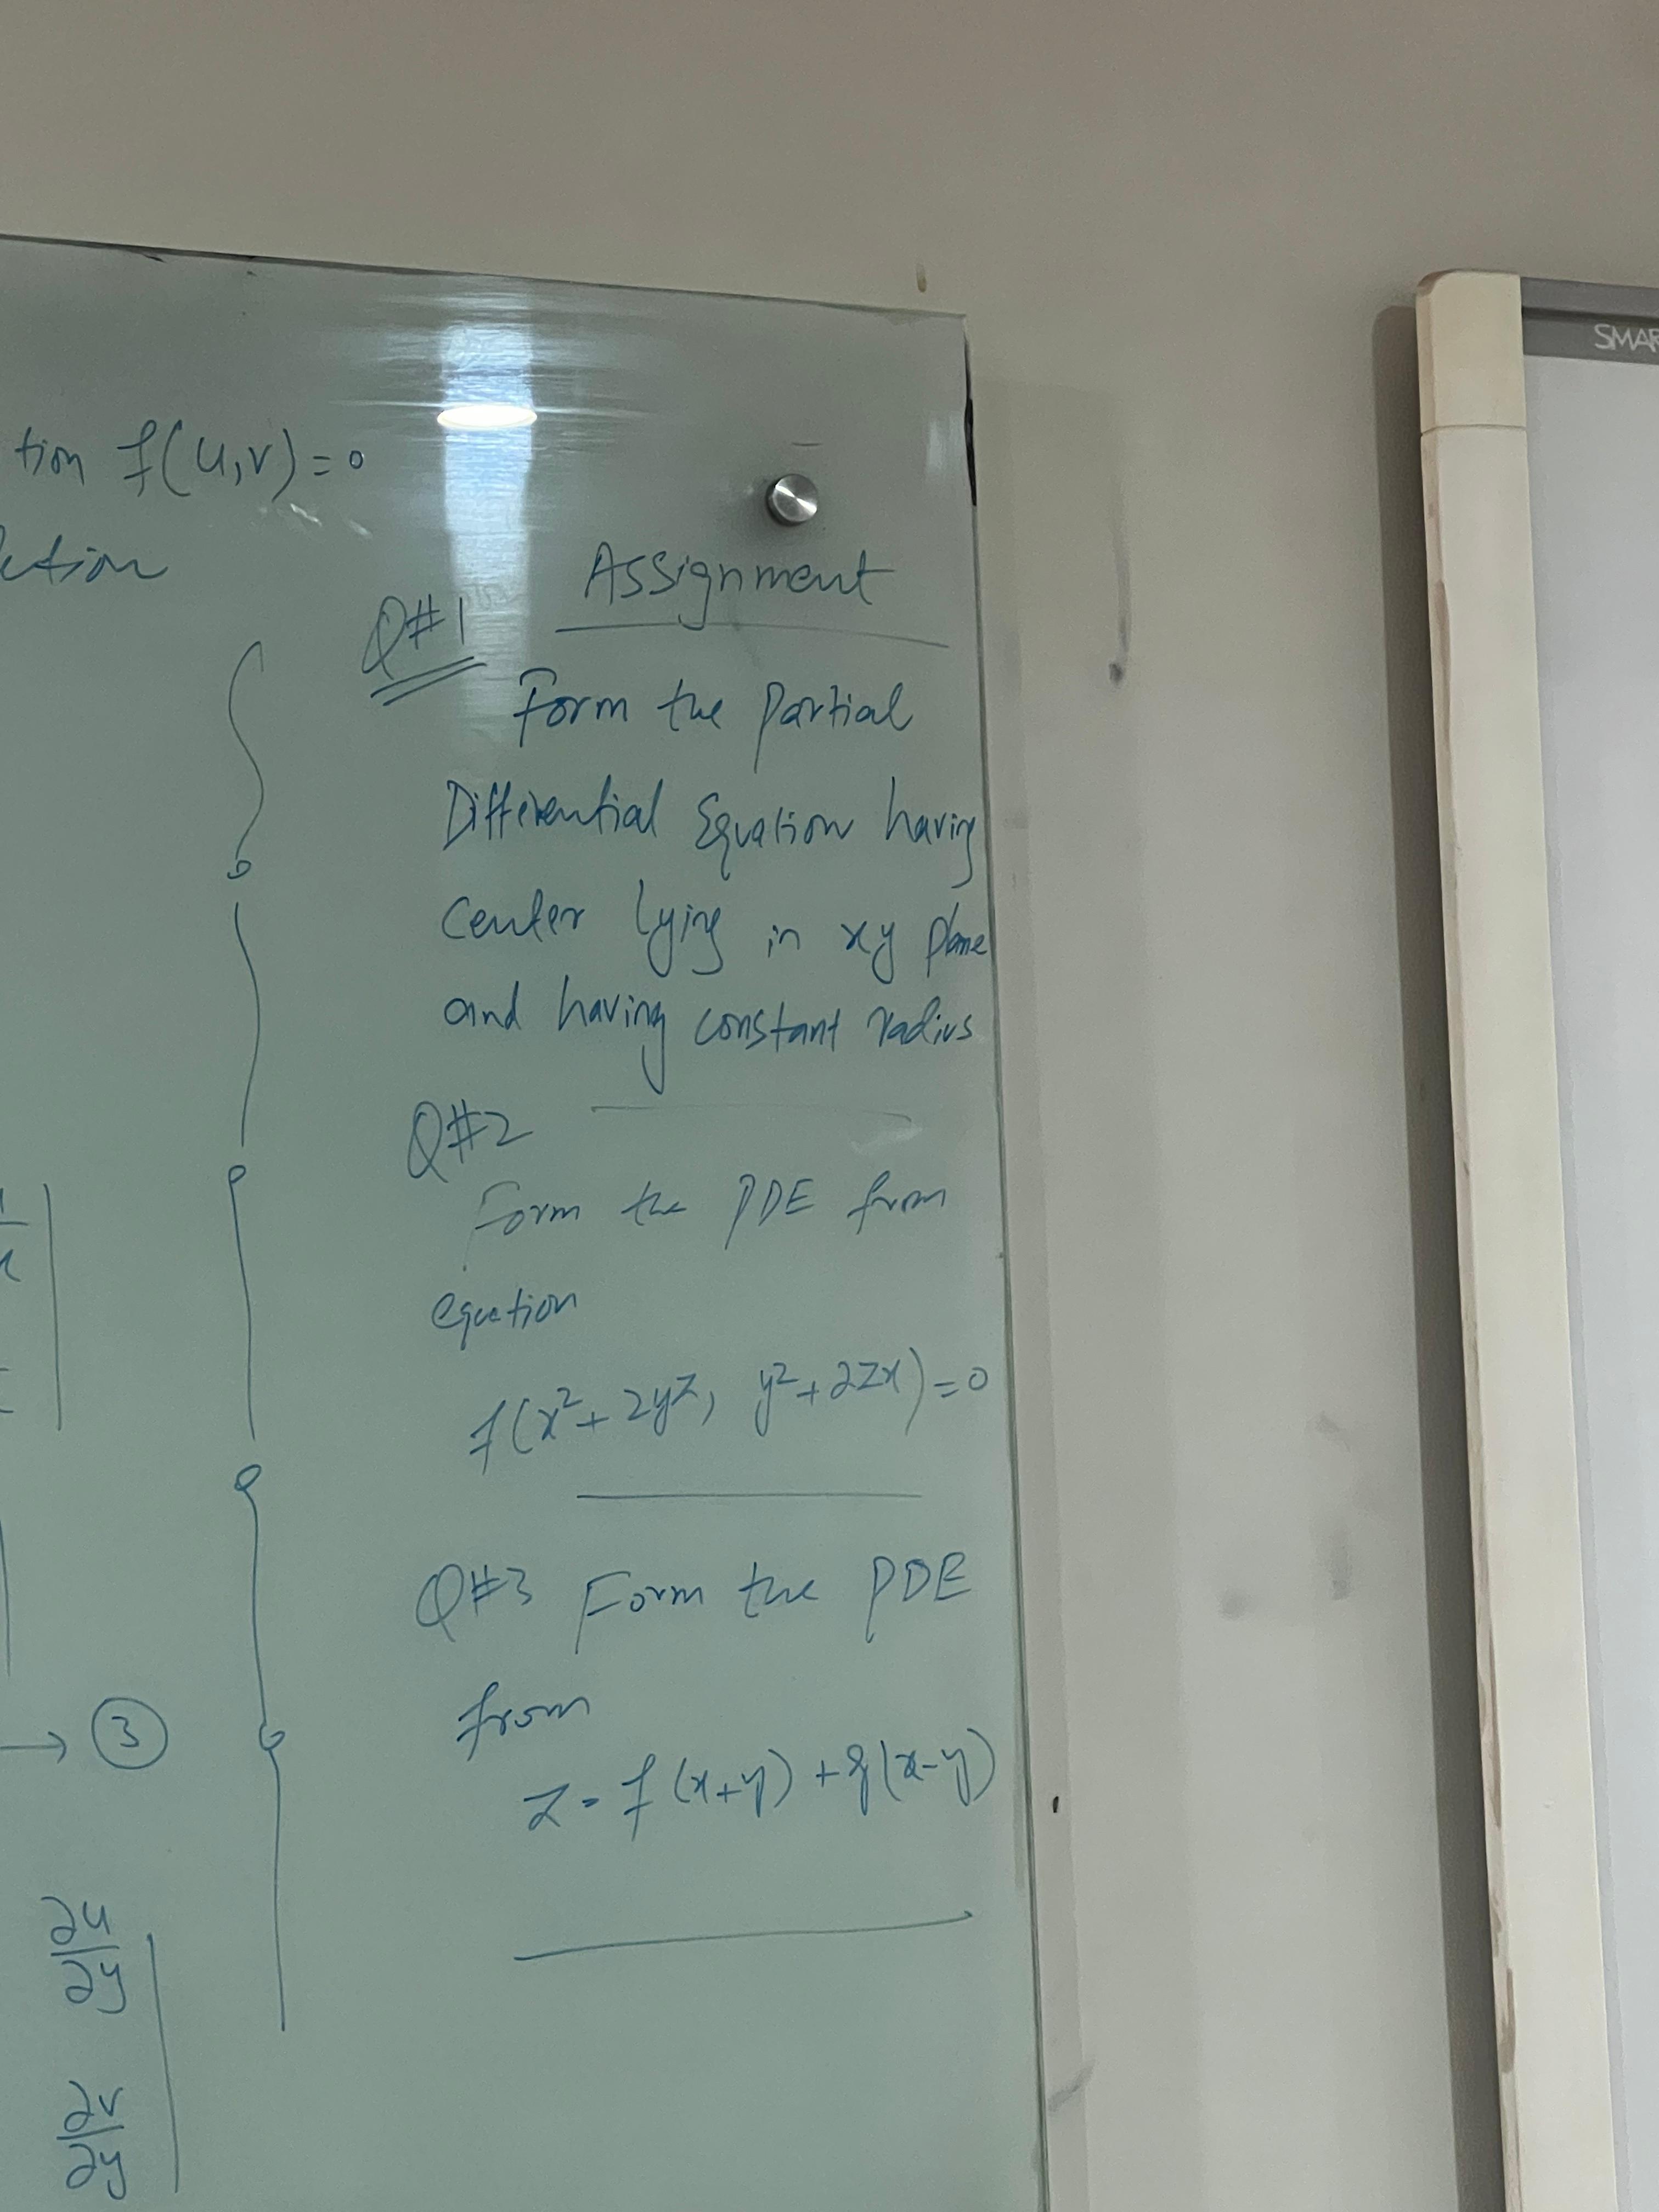 tion f(u,v)=0
Assignment
Q#1
Form the Partial
Differential Equation having
Center lying in xy plane
and having constant radius
Q#2
Form the PDE from
equation
f(x²+2yz, y²+2zx)=0
Q#3 Form the PDE
from
z=f(x+y)+g(x-y)
→ ③
∂u
∂y
∂v
∂y
SMAR